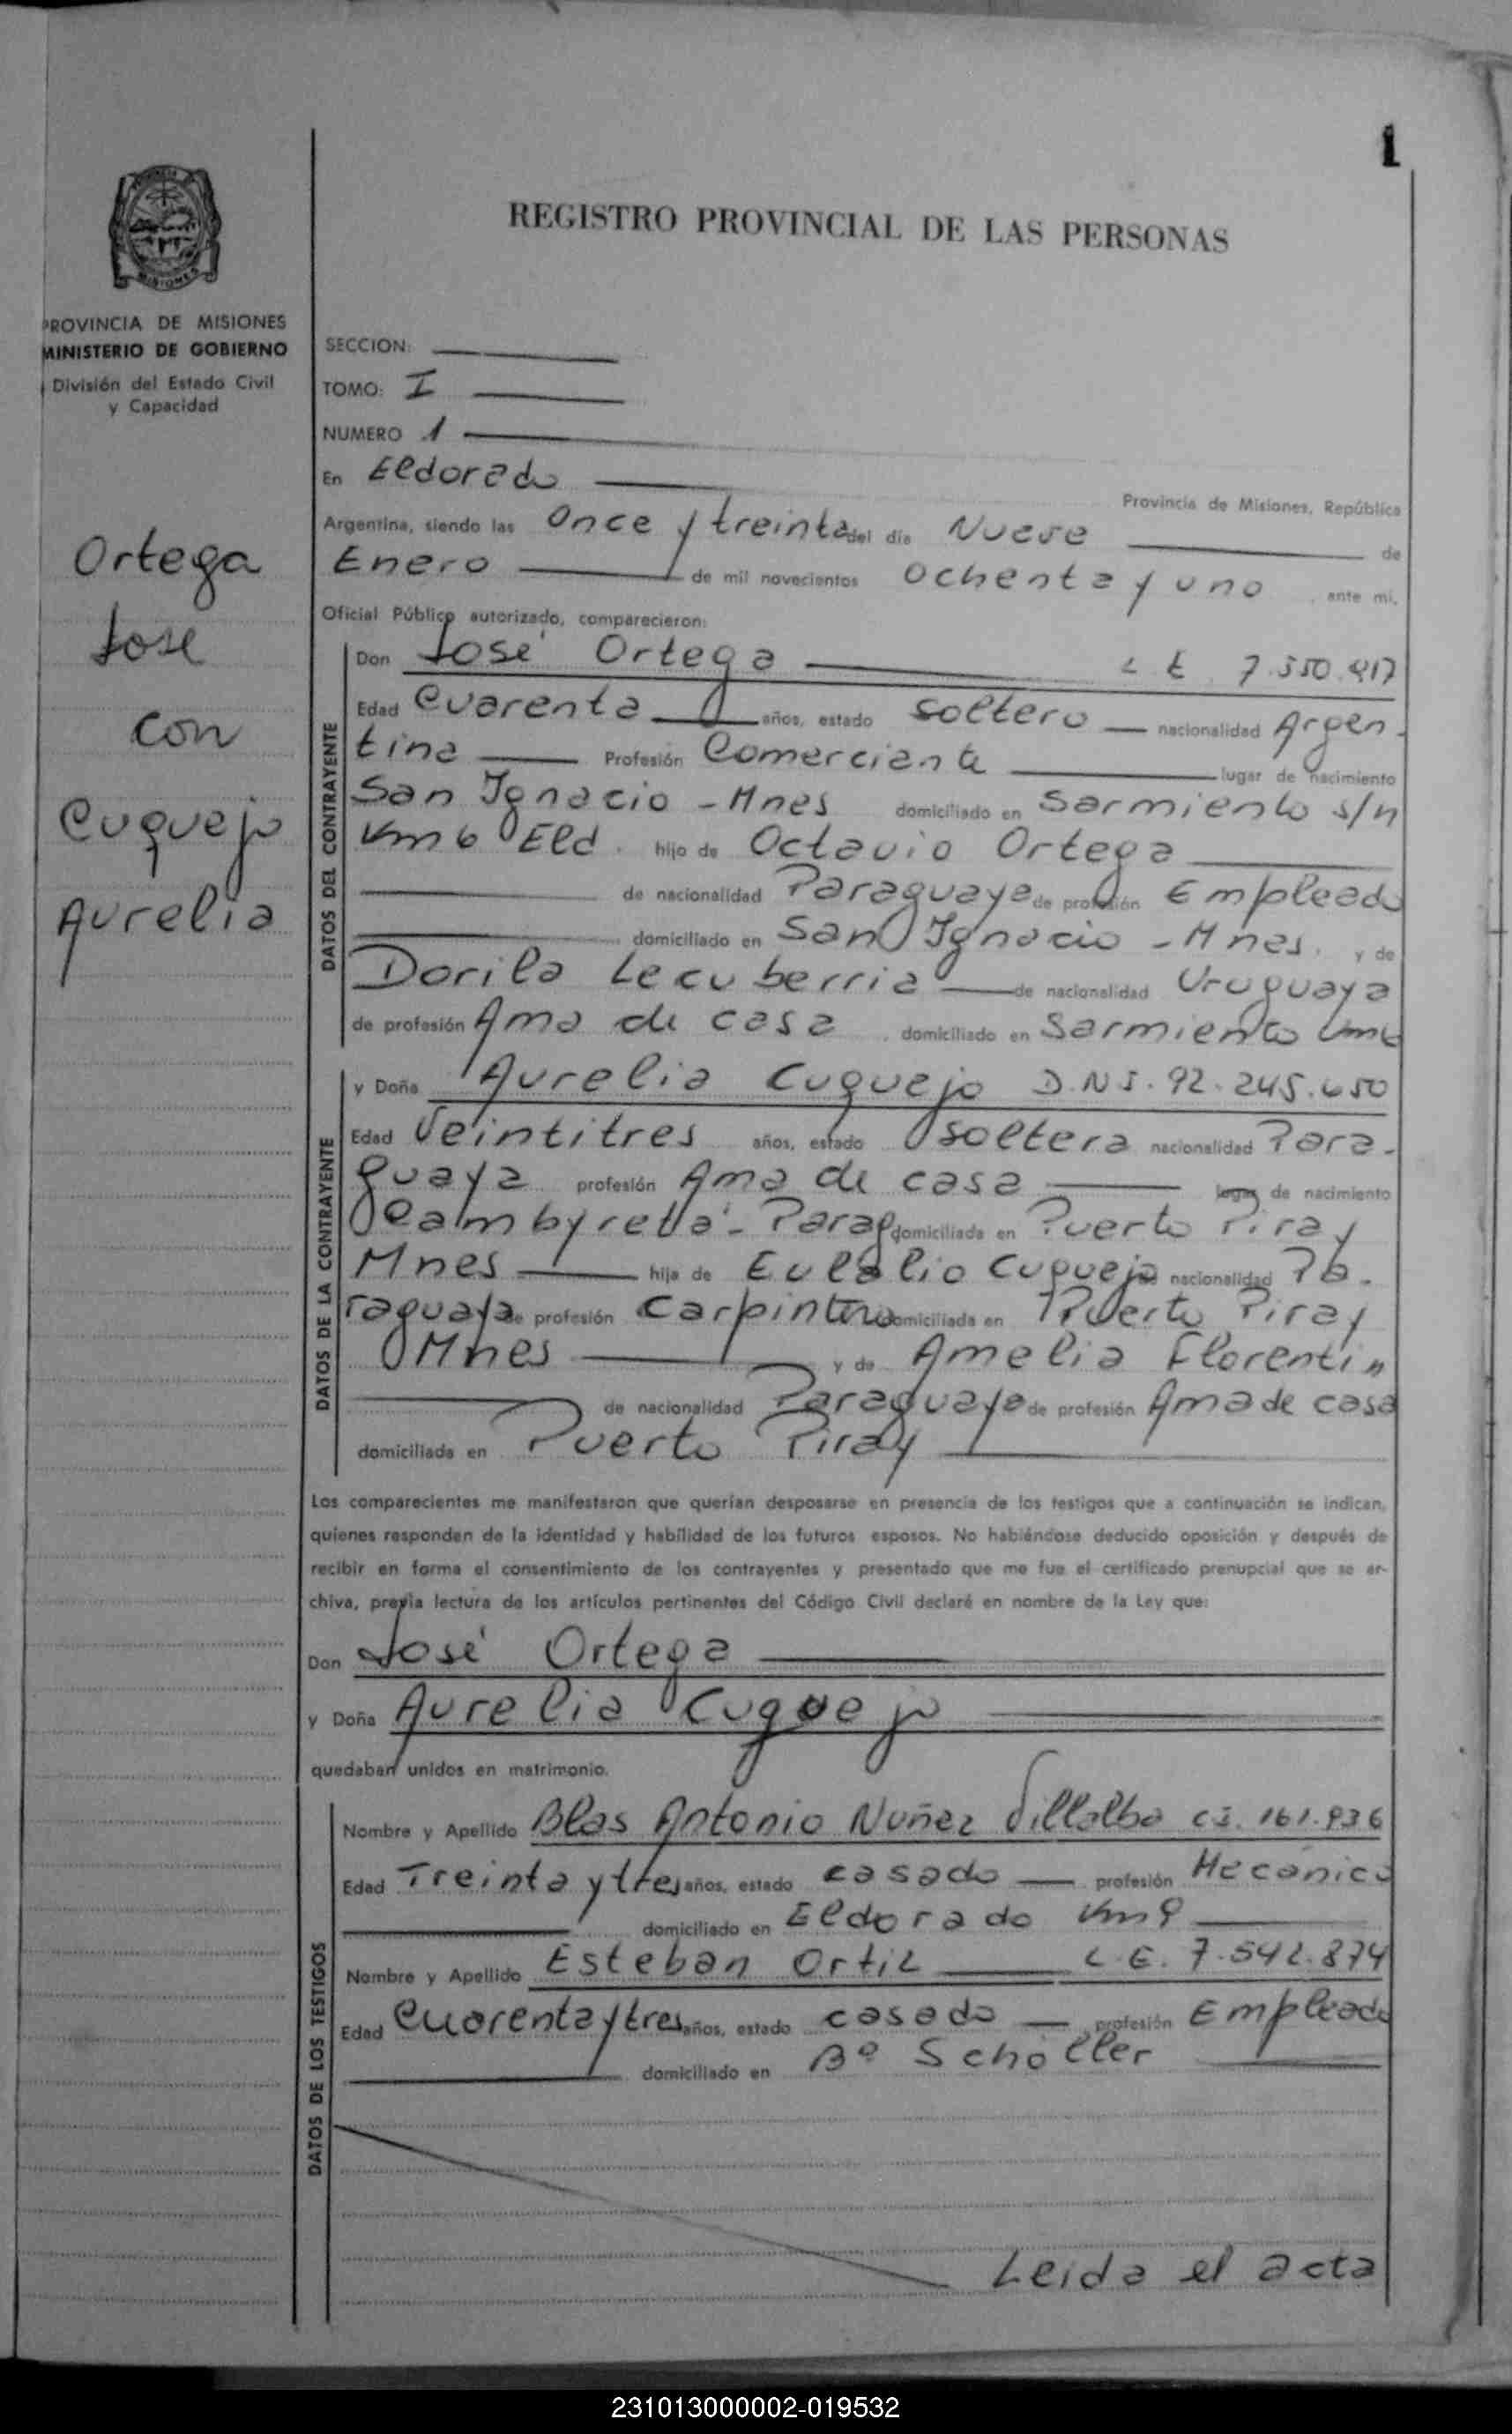 1
REGISTRO PROVINCIAL DE LAS PERSONAS
PROVINCIA DE MISIONES
MINISTERIO DE GOBIERNO
División del Estado Civil
y Capacidad
Ortega
Jose
con
Cuquejo
Aurelia
SECCION:
TOMO: I
NUMERO 1
En Eldorado Provincia de Misiones, República
Argentina, siendo las Once y treinta del día Nueve de
Enero de mil novecientos Ochenta y uno ante mi,
Oficial Público autorizado, comparecieron:
DATOS DEL CONTRAYENTE
Don José Ortega L E 7.550.917
Edad Cuarenta años, estado soltero nacionalidad Argen-
tina Profesión Comerciante lugar de nacimiento
San Ignacio - Mnes domiciliado en Sarmiento s/n
Km 6 Eld. hijo de Octavio Ortega
de nacionalidad Paraguaya de profesión Empleado
domiciliado en San Ignacio - Mnes. y de
Dorila Lecuberria de nacionalidad Uruguaya
de profesión Ama de casa domiciliado en Sarmiento Km6
DATOS DE LA CONTRAYENTE
y Doña Aurelia Cuquejo D.N.I. 92.245.650
Edad Veintitres años, estado soltera nacionalidad Para-
guaya profesión Ama de casa lugar de nacimiento
Cambyretá - Parag domiciliada en Puerto Piray
Mnes hija de Eulalio Cuquejo nacionalidad Pa-
raguaya de profesión Carpintero domiciliada en Puerto Piray
Mnes y de Amelia Florentin
de nacionalidad Paraguaya de profesión Ama de casa
domiciliada en Puerto Piray
Los comparecientes me manifestaron que querían desposarse en presencia de los testigos que a continuación se indican,
quienes responden de la identidad y habilidad de los futuros esposos. No habiéndose deducido oposición y después de
recibir en forma el consentimiento de los contrayentes y presentado que me fue el certificado prenupcial que se ar-
chiva, previa lectura de los artículos pertinentes del Código Civil declaré en nombre de la Ley que:
Don José Ortega
y Doña Aurelia Cuquejo
quedaban unidos en matrimonio.
DATOS DE LOS TESTIGOS
Nombre y Apellido Blas Antonio Nuñez Villalba C.I. 161.936
Edad Treinta y tres años, estado casado profesión Mecánico
domiciliado en Eldorado Km9
Nombre y Apellido Esteban Ortiz L.E. 7.542.874
Edad Cuarenta y tres años, estado casado profesión Empleado
domiciliado en Bº Schöller
Leida el acta
231013000002-019532